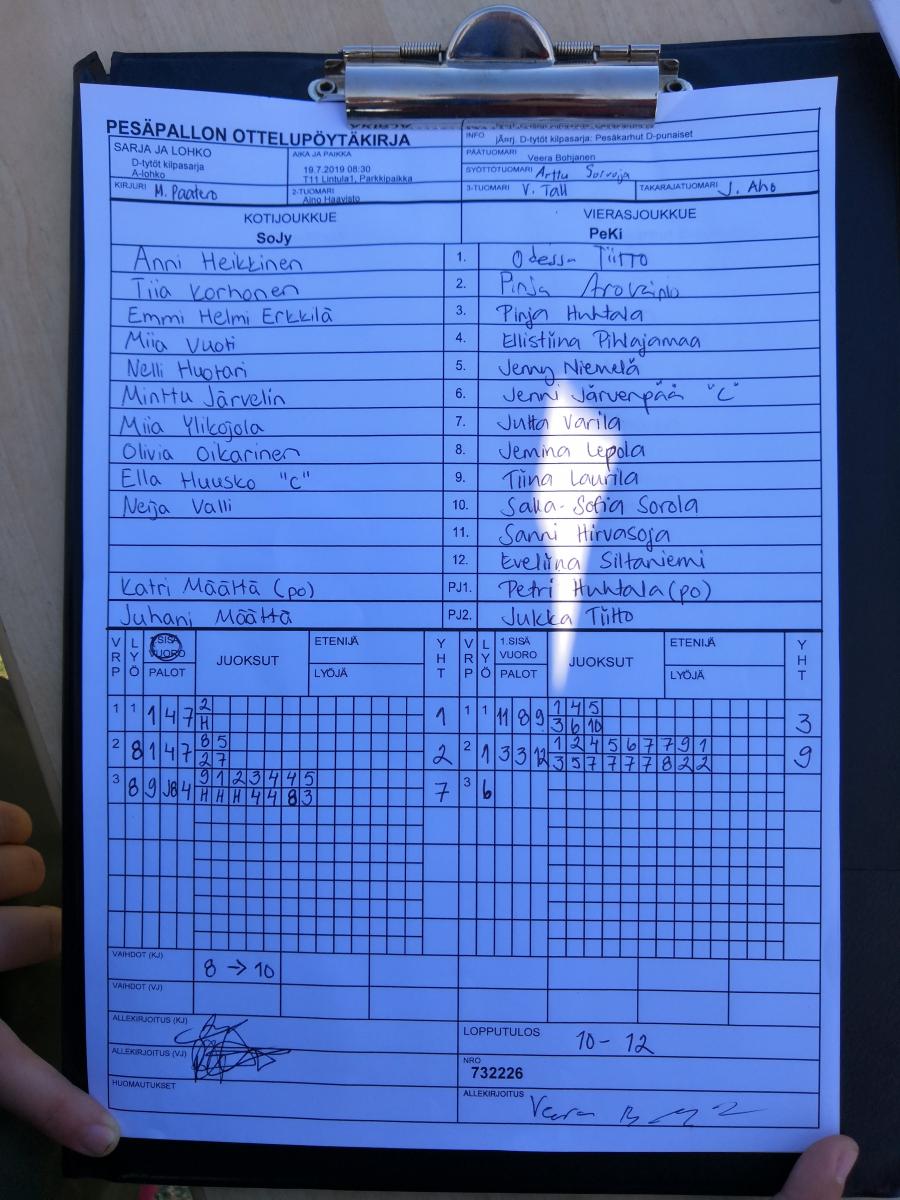 PESÄPALLON OTTELUPÖYTÄKIRJA
INFO jÄnrj D-tytöt kilpasarja: Pesäkarhut D-punaiset
SARJA JA LOHKO D-tytöt kilpasarja A-lohko
AIKA JA PAIKKA 19.7.2019 08:30 T11 Lintula1, Parkkipaikka
PÄÄTUOMARI Veera Bohjanen
SYÖTTÖTUOMARI Arttu Sorvoja
KIRJURI M. Paatero
2-TUOMARI Aino Haavisto
3-TUOMARI V. Tall
TAKARAJATUOMARI J. Aho
KOTIJOUKKUE VIERASJOUKKUE
SoJy PeKi
Anni Heikkinen 1. Odessa Tiitto
Tiia Korhonen 2. Pinja Arovainio
Emmi Helmi Erkkilä 3. Pinja Huhtala
Miia Vuoti 4. Ellistiina Pihlajamaa
Nelli Huotari 5. Jenny Niemelä
Minttu Järvelin 6. Jenni Järvenpää "C"
Miia Ylikojola 7. Jutta Varila
Olivia Oikarinen 8. Jemina Lepola
Ella Huusko "C" 9. Tiina Laurila
Neija Valli 10. Salla-Sofia Sorola
11. Sanni Hirvasoja
12. Eveliina Siltaniemi
Katri Määttä (po) PJ1. Petri Huhtala (po)
Juhani Määttä PJ2. Jukka Tiitto
VRP LYÖ 1.SISÄ VUORO PALOT JUOKSUT ETENIJÄ LYÖJÄ YHT VRP LYÖ 1.SISÄ VUORO PALOT JUOKSUT ETENIJÄ LYÖJÄ YHT
1 1 1 4 7 2 1 1 1 11 8 9 1 4 5 3
H 3 6 10
2 8 1 4 7 8 5 2 2 1 3 3 12 1 2 4 5 6 7 7 9 1 9
2 7 3 5 7 7 7 7 8 2 2
3 8 9 J8 4 9 1 2 3 4 4 5 7 3 6
H H H 4 4 8 3
VAIHDOT (KJ) 8 → 10
VAIHDOT (VJ)
ALLEKIRJOITUS (KJ)
LOPPUTULOS 10-12
ALLEKIRJOITUS (VJ)
NRO 732226
HUOMAUTUKSET
ALLEKIRJOITUS Veera